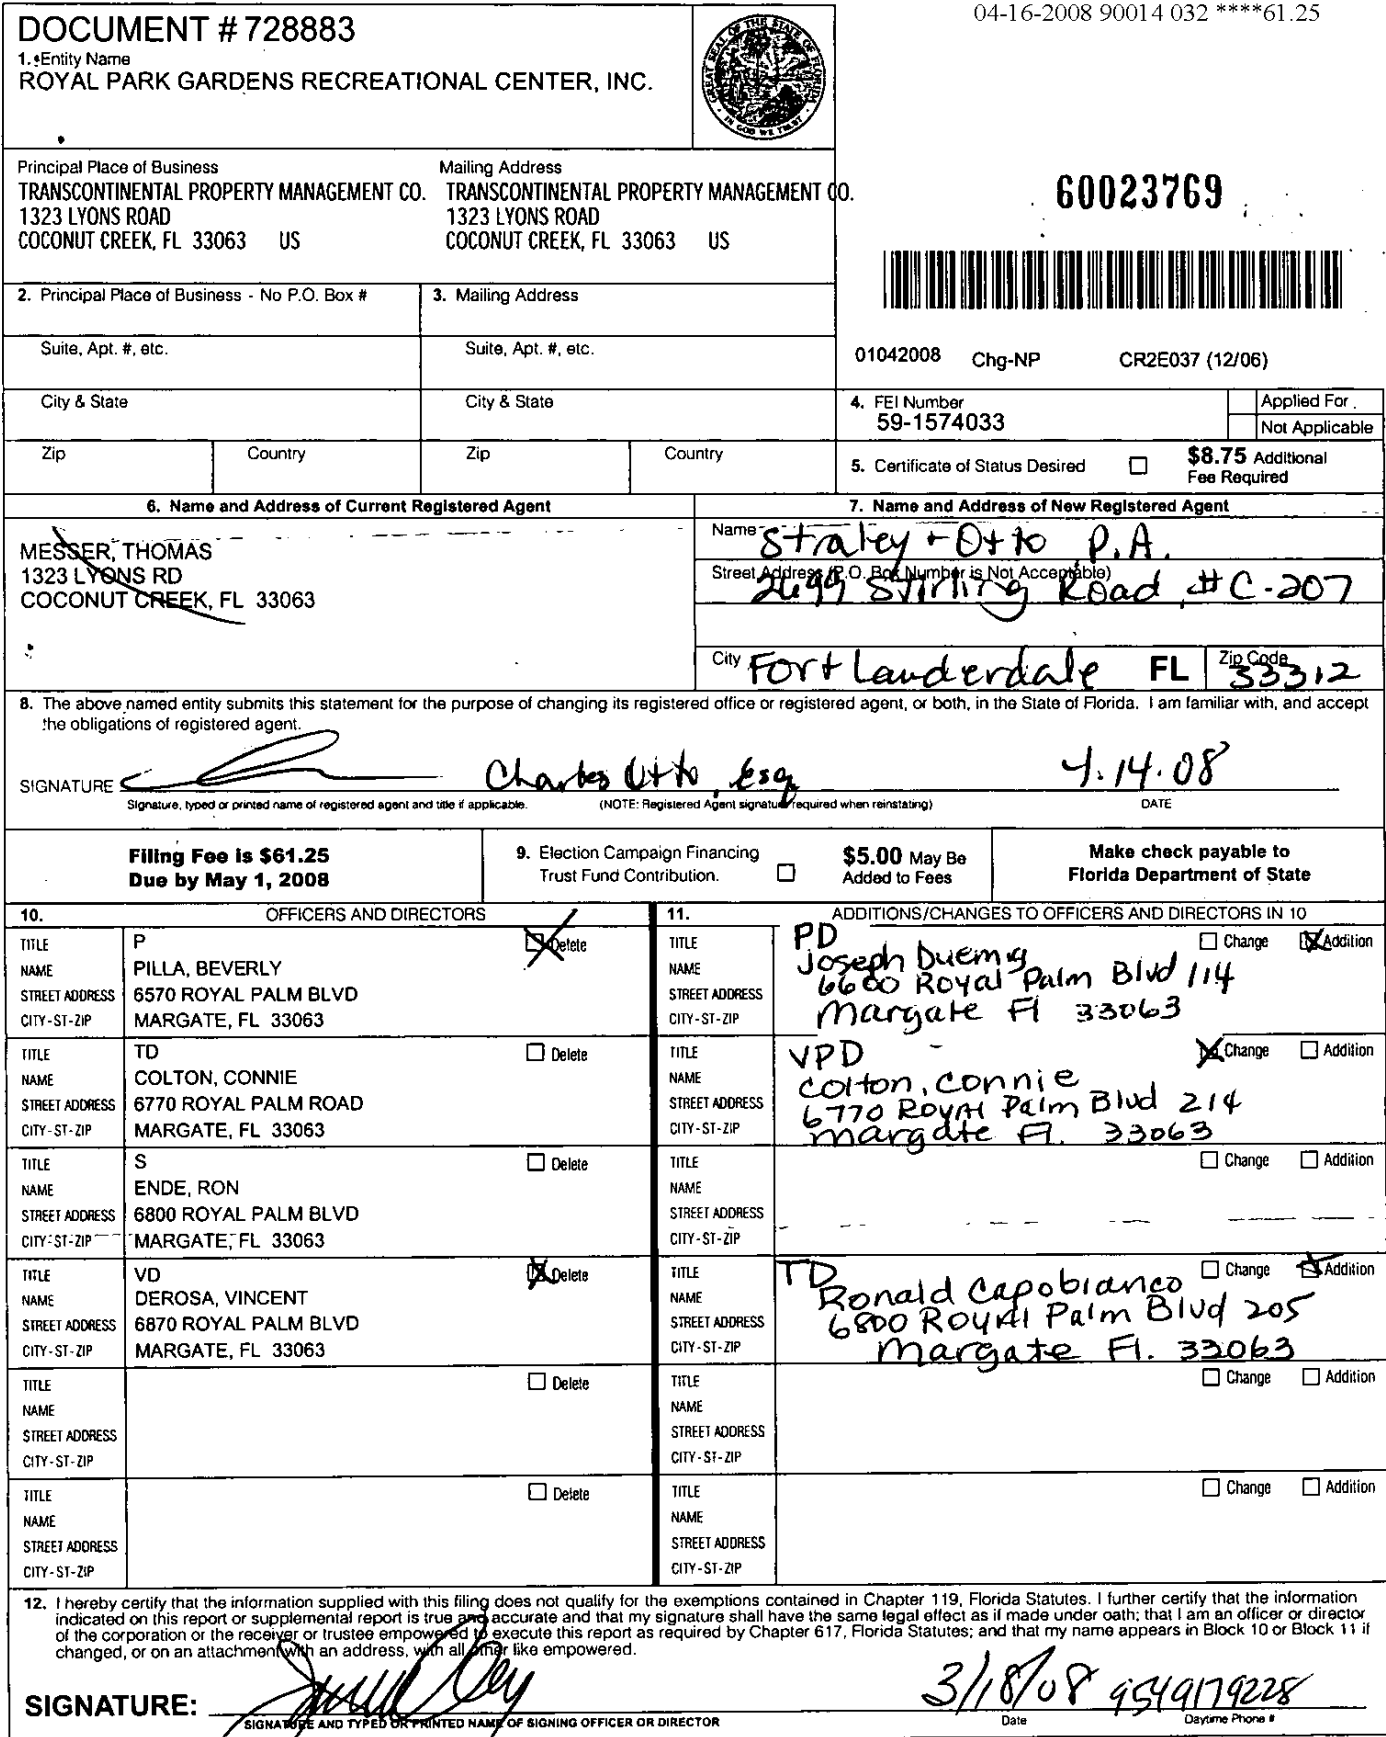 04-16-2008 90014 032 ****61.25
DOCUMENT # 728883
1. Entity Name
ROYAL PARK GARDENS RECREATIONAL CENTER, INC.
GREAT SEAL OF THE STATE OF FLORIDA
IN GOD WE TRUST
Principal Place of Business
TRANSCONTINENTAL PROPERTY MANAGEMENT CO.
1323 LYONS ROAD
COCONUT CREEK, FL 33063 US
Mailing Address
TRANSCONTINENTAL PROPERTY MANAGEMENT CO.
1323 LYONS ROAD
COCONUT CREEK, FL 33063 US
60023769
2. Principal Place of Business - No P.O. Box #
3. Mailing Address
Suite, Apt. #, etc.
Suite, Apt. #, etc.
01042008 Chg-NP CR2E037 (12/06)
City & State
City & State
4. FEI Number
59-1574033
Applied For
Not Applicable
Zip Country
Zip Country
5. Certificate of Status Desired
$8.75 Additional
Fee Required
6. Name and Address of Current Registered Agent
MESSER, THOMAS
1323 LYONS RD
COCONUT CREEK, FL 33063
7. Name and Address of New Registered Agent
Name Straley + Otto P.A.
Street Address (P.O. Box Number is Not Acceptable)
2699 Stirling Road, #C-207
City Fort Lauderdale FL Zip Code 33312
8. The above named entity submits this statement for the purpose of changing its registered office or registered agent, or both, in the State of Florida. I am familiar with, and accept
the obligations of registered agent.
SIGNATURE Charles Otto, Esq 4.14.08
Signature, typed or printed name of registered agent and title if applicable. (NOTE: Registered Agent signature required when reinstating) DATE
Filing Fee is $61.25
Due by May 1, 2008
9. Election Campaign Financing
Trust Fund Contribution.
$5.00 May Be
Added to Fees
Make check payable to
Florida Department of State
10. OFFICERS AND DIRECTORS
11. ADDITIONS/CHANGES TO OFFICERS AND DIRECTORS IN 10
TITLE P Delete
NAME PILLA, BEVERLY
STREET ADDRESS 6570 ROYAL PALM BLVD
CITY-ST-ZIP MARGATE, FL 33063
TITLE PD Change Addition
NAME Joseph Duemig
STREET ADDRESS 6600 Royal Palm Blvd 114
CITY-ST-ZIP Margate Fl 33063
TITLE TD Delete
NAME COLTON, CONNIE
STREET ADDRESS 6770 ROYAL PALM ROAD
CITY-ST-ZIP MARGATE, FL 33063
TITLE VPD Change Addition
NAME Colton, Connie
STREET ADDRESS 6770 Royal Palm Blvd 214
CITY-ST-ZIP Margate Fl. 33063
TITLE S Delete
NAME ENDE, RON
STREET ADDRESS 6800 ROYAL PALM BLVD
CITY-ST-ZIP MARGATE, FL 33063
TITLE Change Addition
NAME
STREET ADDRESS
CITY-ST-ZIP
TITLE VD Delete
NAME DEROSA, VINCENT
STREET ADDRESS 6870 ROYAL PALM BLVD
CITY-ST-ZIP MARGATE, FL 33063
TITLE TD Change Addition
NAME Ronald Capobianco
STREET ADDRESS 6800 Royal Palm Blvd 205
CITY-ST-ZIP Margate Fl. 33063
TITLE Delete
NAME
STREET ADDRESS
CITY-ST-ZIP
TITLE Change Addition
NAME
STREET ADDRESS
CITY-ST-ZIP
TITLE Delete
NAME
STREET ADDRESS
CITY-ST-ZIP
TITLE Change Addition
NAME
STREET ADDRESS
CITY-ST-ZIP
12. I hereby certify that the information supplied with this filing does not qualify for the exemptions contained in Chapter 119, Florida Statutes. I further certify that the information
indicated on this report or supplemental report is true and accurate and that my signature shall have the same legal effect as if made under oath; that I am an officer or director
of the corporation or the receiver or trustee empowered to execute this report as required by Chapter 617, Florida Statutes; and that my name appears in Block 10 or Block 11 if
changed, or on an attachment with an address, with all other like empowered.
SIGNATURE: 3/18/08 9549179228
SIGNATURE AND TYPED OR PRINTED NAME OF SIGNING OFFICER OR DIRECTOR Date Daytime Phone #